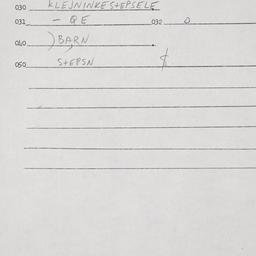 030 KLEJNINKESTEPSELE
031 - QE 032 0
040 ) BARN
050 STEPSN ¢